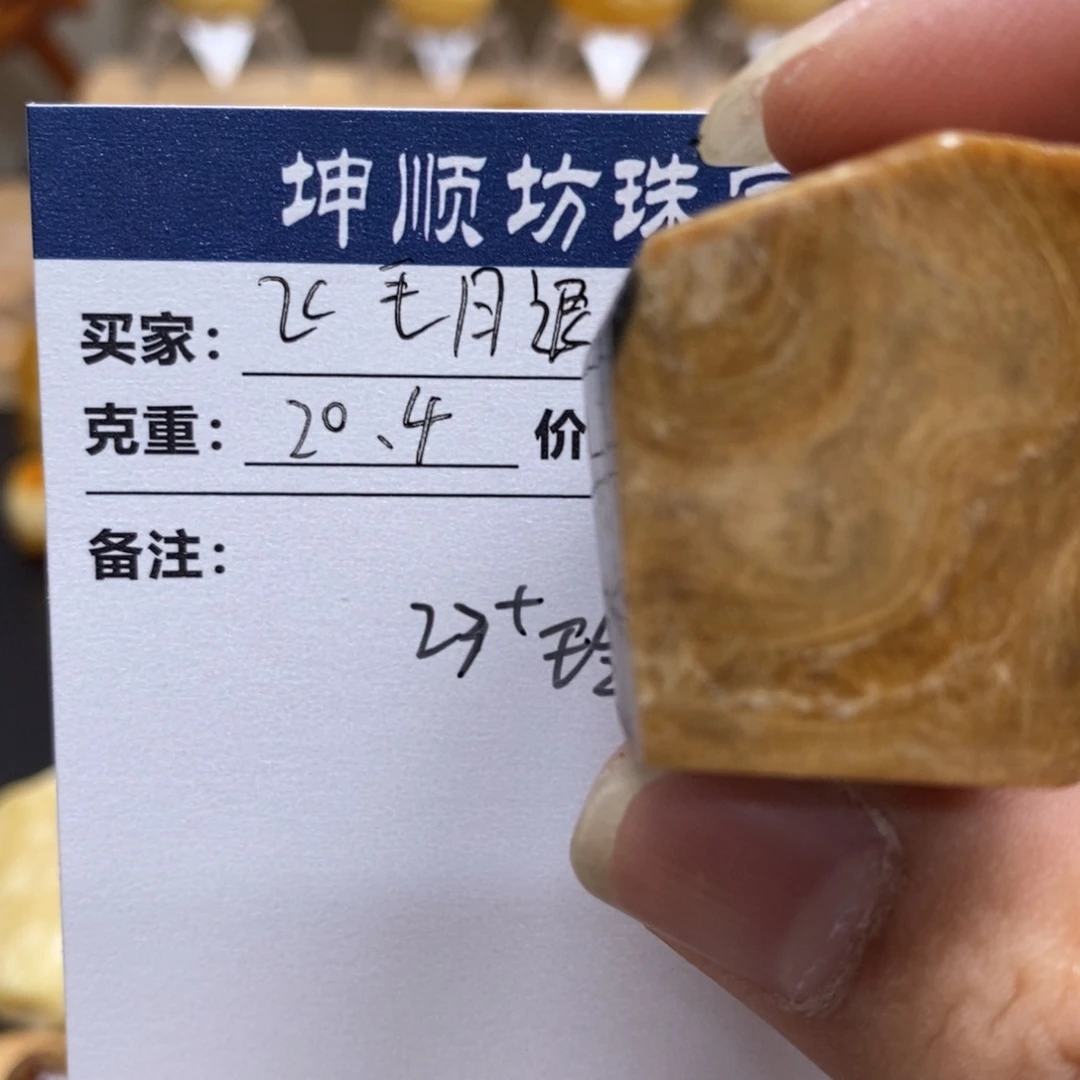 坤顺坊珠
买家： 毛月退
克重： 20.4 价
备注：
23+